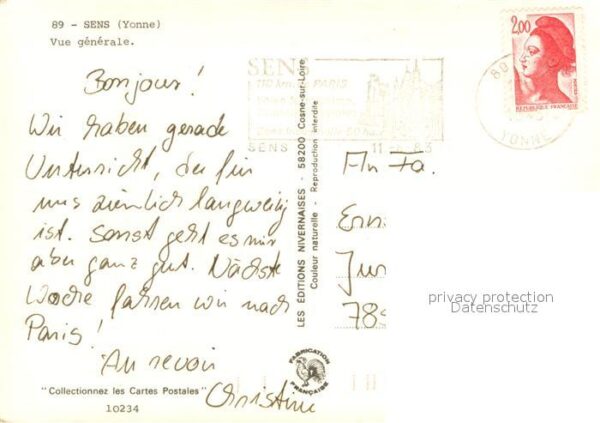 89 - SENS (Yonne)
Vue générale.
Bonjour!
Wir haben gerade
Unterricht, der für
uns ziemlich langweilig
ist. Sonst geht es mir
aber ganz gut. Nächste
Woche fahren wir nach
Paris!
Au revoir
Christine
"Collectionnez les Cartes Postales"
10234
LES ÉDITIONS NIVERNAISES - 58200 Cosne-sur-Loire
Couleur naturelle - Reproduction interdite
FABRICATION
FRANÇAISE
SENS
110 km PARIS
SENS
11 83
2,00
REPUBLIQUE FRANÇAISE
YONNE
An Fa.
789
privacy protection
Datenschutz